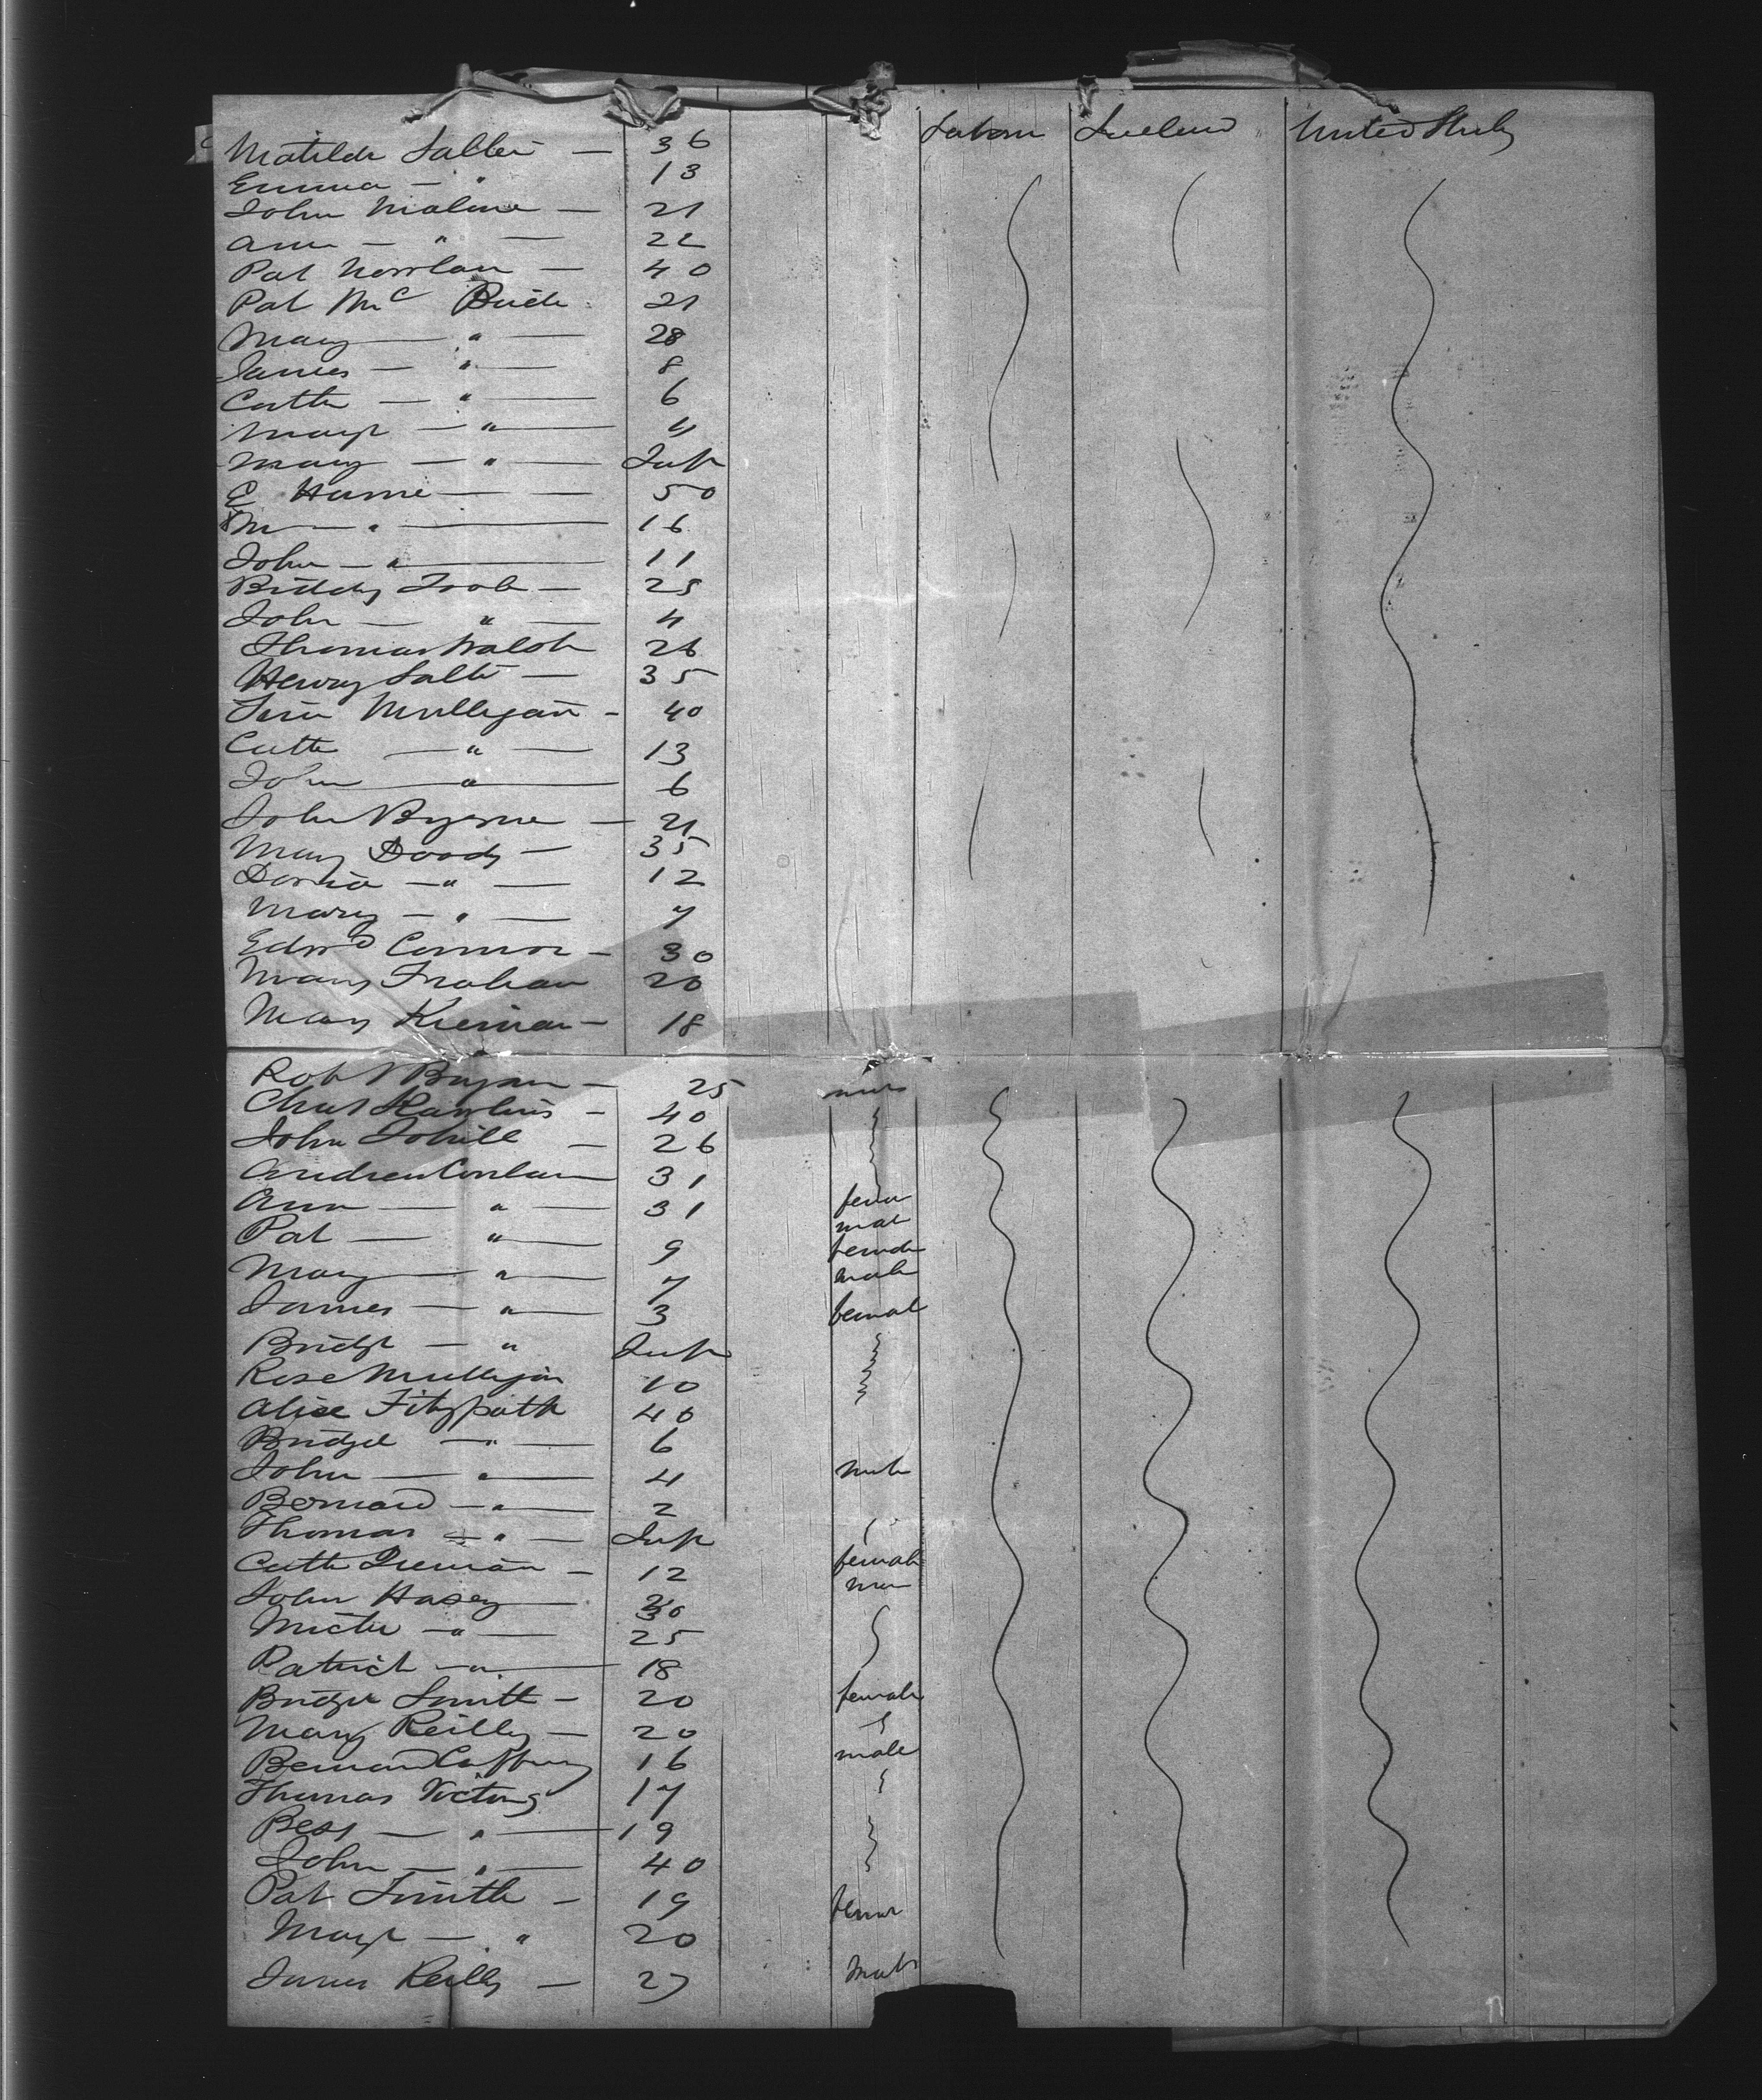 Matilda Salter — 36 Labour Ireland United States
Emma — " 13
John Malone — 21
Ann — " — 22
Pat Nowlan — 40
Pat Mc Bride 21
Mary — " — 28
James — " — 8
Cath — " — 6
Margt — " — 4
Mary — " — Inft
E Hume — — 50
M — " — 16
John — " — 11
Biddy Toole — 25
John — " — 4
Thomas Walsh 26
Henry Salter — 35
Mulligan — 40
Cath — " — 13
John — " — 6
John Byrne — 21
Mary Doody — 35
— " — 12
Mary — " — 7
Edwd Connor — 30
Mary 20
Mary Kiernan — 18
Robt Bryan — 25
Chas Hawkins — 40
John — 26
Andrew Conlan — 31
Ann — " — 31 fem
Pat — " — 9 male
Mary — " — 7 female
James — " — 3 male
Bridgt — " Inft female
Rose Mulligan 10
Alice Fitzpatk 40
Bridget — " — 6
John — " — 4 male
Bernard — " — 2
Thomas — " — Inft
Cath — 12 female
John Hasey — 30
Michl — " — 25
Patrick — " — 18
Bridget Smith — 20 female
Mary Reilly — 20
Bernard Caffrey 16 male
Thomas 17
Bess — " — 19
John — " — 40
Pat Smith — 19
Margt — " 20
James Reilly — 27 male